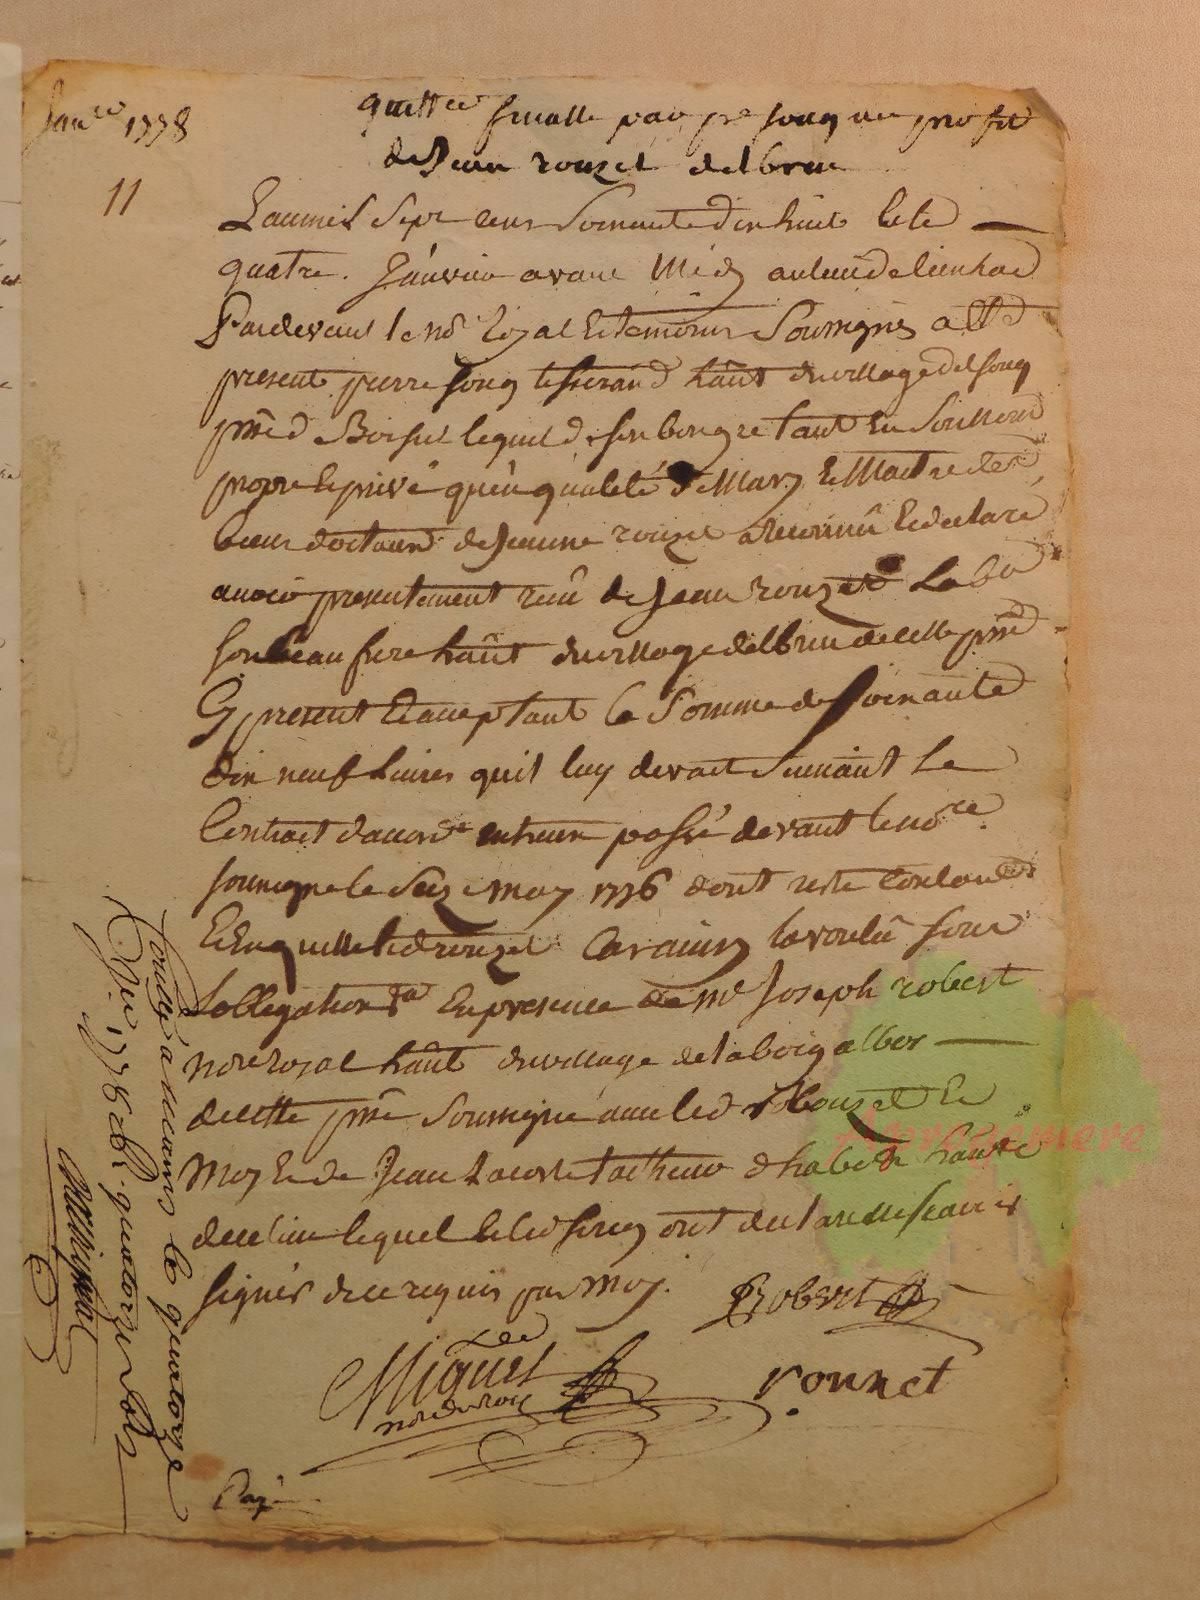 Janer 1778
quittce finalle par pre souq au profit
de Jean rouzet delbruc
11
Lan mil Sept cens Soixante dix huit le le
quatre Janvier avant Midy au lieu de
Pardevant le nore Royal Et temoins Soussignés a été
present pierre souq tisserand habt du village del souq
psse de Boisset lequel de son bon gre tant En Son nom
propre le privé qu'en qualité de Mary Et Maitre des
biens dotaux de Jeanne rouzet a reconnû Et declaré
avoir presentement reçû de Jean rouzet
son beau frere habt du village delbruc de cette psse
Cy present Et acceptant la Somme de Soixante
dix neuf Livres quil luy devait Suivant Le
Contract daccord entreux passé devant le nore
soussigne le Seize may 1776 dont reste Content
Et En quitte led rouzet Car ainsy la voulû sous
Lobligation En presence de Me Joseph robert
nore royal habt du village de
de cette psse Soussigné avec led Rouzet Et
Moy Et de Jean Lacoste habt
de ce lieu lequel Et led souq ont declaré ne scavoir
signer de ce requis par Moy.
Robert
Miquel
nore du roy
rouzet
le quatorze
1778 quatorze sols
Payé